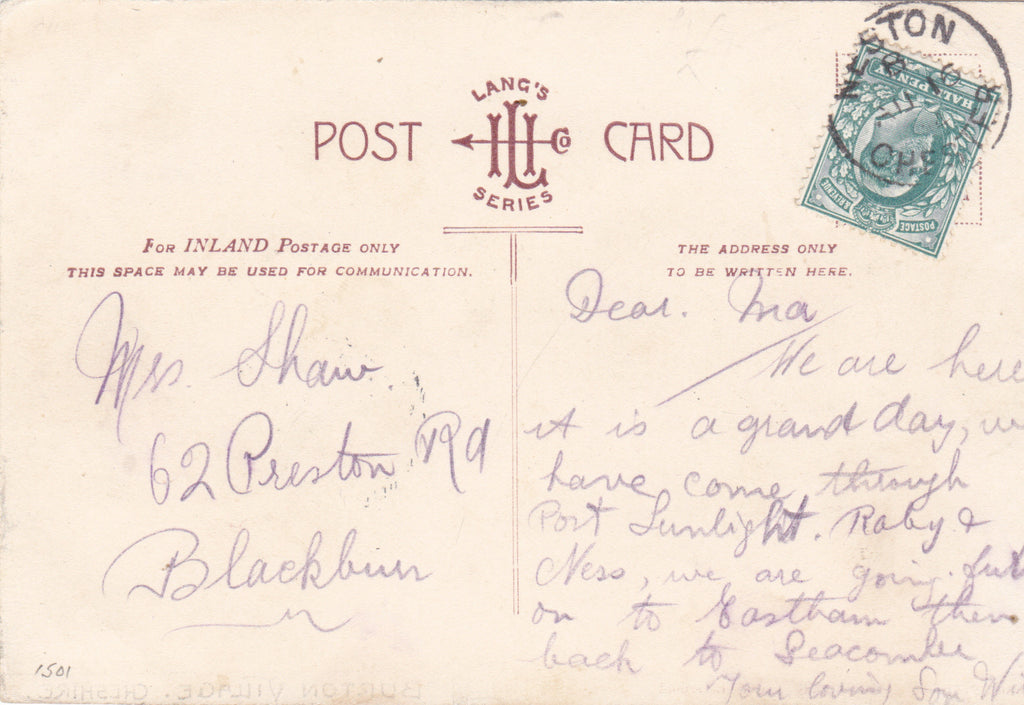 LANG'S
POST CARD
Co
SERIES
NESTON
HALFPENNY
CHE
POSTAGE & REVENUE
FOR INLAND POSTAGE ONLY
THIS SPACE MAY BE USED FOR COMMUNICATION.
THE ADDRESS ONLY
TO BE WRITTEN HERE.
Mrs. Shaw.
62 Preston Rd
Blackburn
Dear. Ma
We are here
it is a grand day, w
have come through
Port Sunlight. Raby &
Ness, we are going
on to Eastham then
back to Seacombe
Your loving Son Wi
1501
BURTON VILLAGE. CHESHIRE.